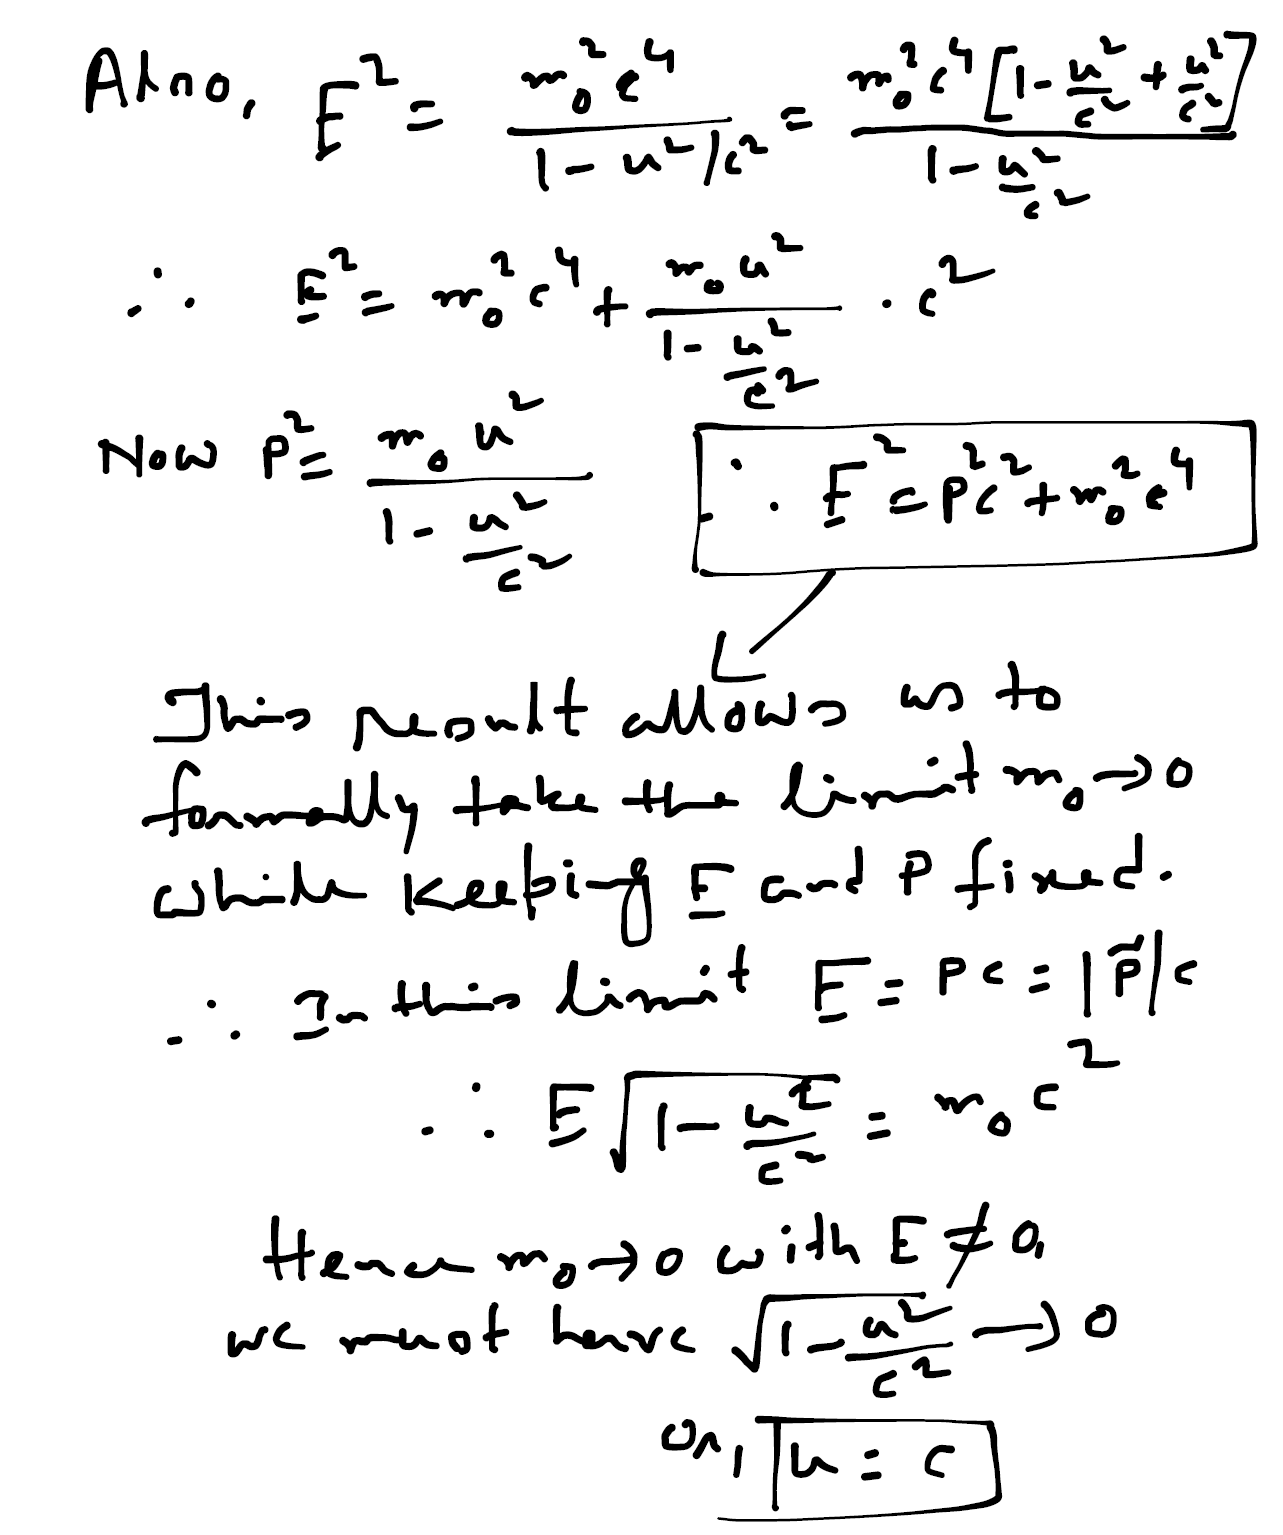 Also, E² = m₀²c⁴ / (1 - u²/c²) = m₀²c⁴ [1 - u²/c² + u²/c²] / (1 - u²/c²)
∴ E² = m₀²c⁴ + m₀u² / (1 - u²/c²) · c²
Now P² = m₀u² / (1 - u²/c²)
∴ E² = P²c² + m₀²c⁴
This result allows us to
formally take the limit m₀→0
while keeping E and P fixed.
∴ In this limit E = Pc = |p̃|c
∴ E√(1 - u²/c²) = m₀c²
Hence m₀→0 with E ≠ 0,
we must have √(1 - u²/c²) → 0
or, u = c